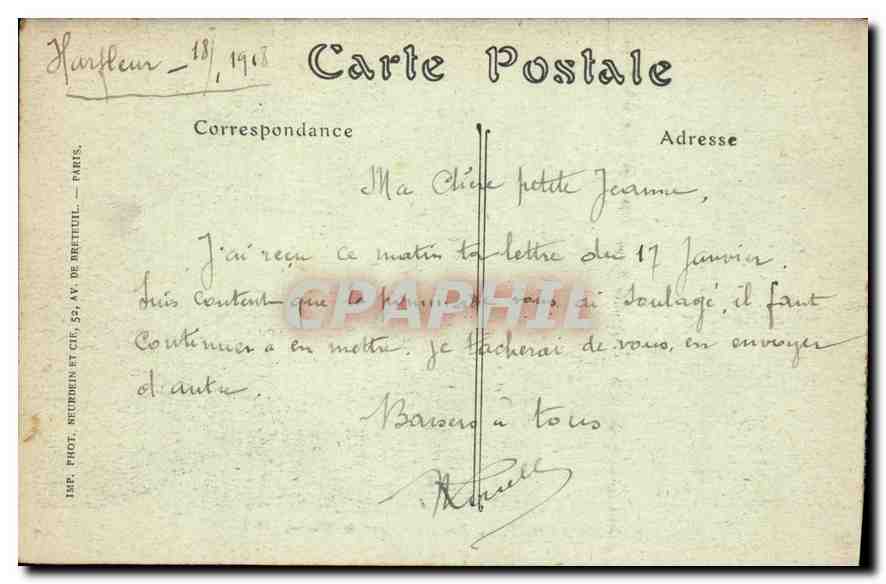 Harfleur - 18/1 1918
Carte Postale
Correspondance
Adresse
Ma Chère petite Jeanne,
J'ai reçu ce matin ta lettre du 17 Janvier.
Suis content que la pommade vous ai soulagé, il faut
continuer à en mettre. Je tacherai de vous en envoyer
d'autre.
Baisers à tous
IMP. PHOT. NEURDEIN ET CIE, 52, AV. DE BRETEUIL. — PARIS.
CPAPHIL